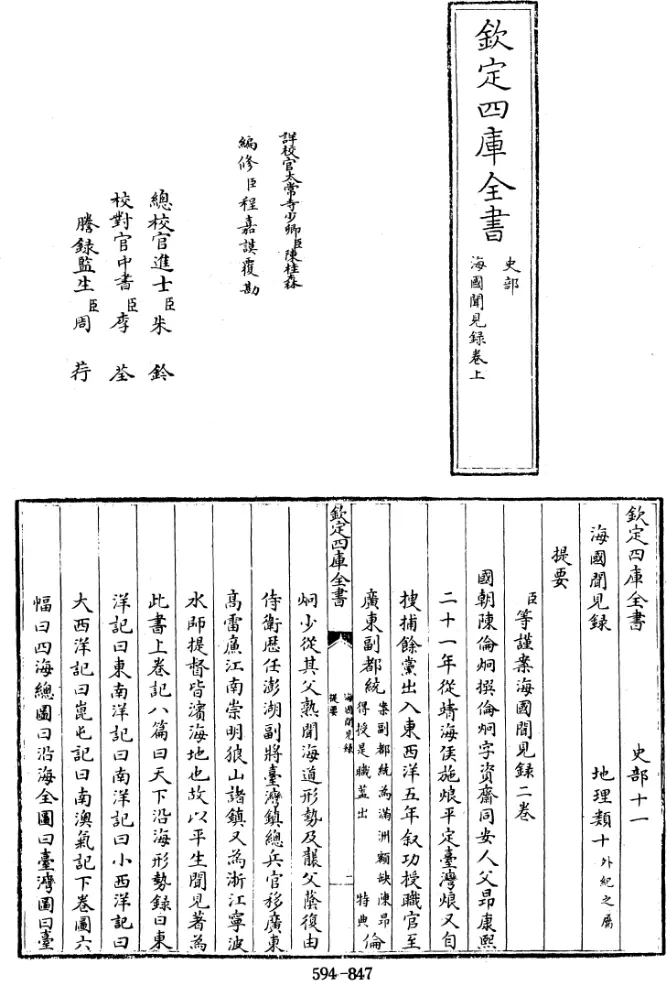 欽定四庫全書
史部
海國聞見録卷上
詳校官太常寺少卿臣陳桂森
編修臣程嘉謨覆勘
總校官進士臣朱鈐
校對官中書臣李荃
謄録監生臣周荇
欽定四庫全書
史部十一
海國聞見録
地理類十外紀之屬
提要
臣等謹案海國聞見録二卷
國朝陳倫炯撰倫炯字資齋同安人父昂康熙
二十一年從靖海侯施烺平定臺灣烺又自
搜捕餘黨出入東西洋五年叙功授職官至
廣東副都統案副都統為滿洲額缺陳昂得授是職蓋出特典倫
欽定四庫全書
海國聞見録
提要
二
炯少從其父熟聞海道形勢及襲父蔭復由
侍衛歴任澎湖副將臺灣鎮總兵官移廣東
高雷廉江南崇明狼山諸鎮又為浙江寧波
水師提督皆濱海地也故以平生聞見著為
此書上卷記八篇曰天下沿海形勢録曰東
洋記曰東南洋記曰南洋記曰小西洋記曰
大西洋記曰崑屯記曰南澳氣記下卷圖六
幅曰四海總圖曰沿海全圖曰臺灣圖曰臺
594-847